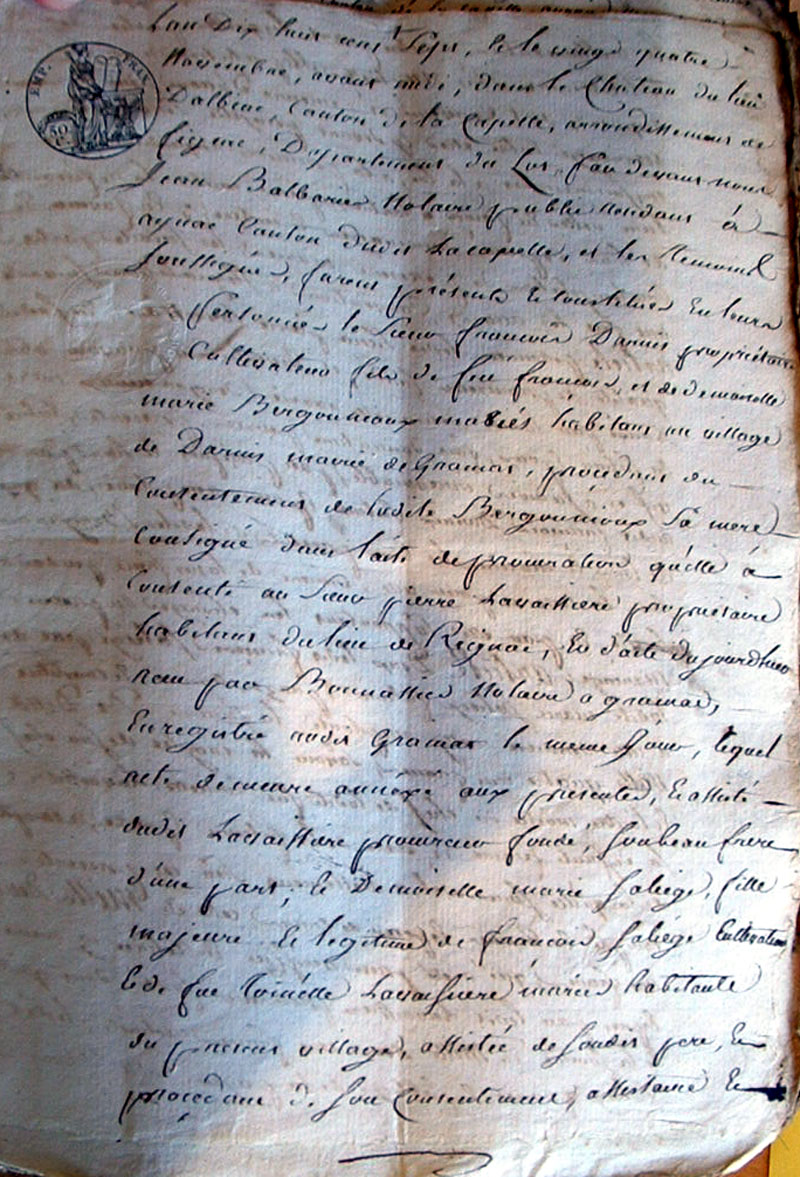 EMP. FRIX
50 C.
Lan Dix huit cent Sept, & le vingt quatre
Novembre, avant midi, dans le Chateau du lieu
Dalbiac, Canton de la Capelle, arrondissement de
figeac, Departement du Lot, pardevant nous
Jean Balbarie Notaire public Residant à
aynac Canton dudit Lacapelle, et les temoins
Soussignés, furent présents & constitués En leurs
personnes le Sieur françois Darnis propriétaire
Cultivateur fils de feu françois, et de demoiselle
marie Bergounioux mariés habitant au village
de Darnis mairie de Gramat, procédant du
Consentement de ladite Bergounioux Sa mere
Consigné dans l'acte de procuration qu'elle à
Consenti au Sieur pierre Lavaissiere propriétaire
habitant du lieu de Rignac, En d'acte du jourdhuy
recu par Bonnassies Notaire a gramat,
Enregistré audit Gramat le meme Jour, lequel
acte demeure annéxé aux presentes, & assisté
dudit Lavaissiere procureur fondé, Son beau frere
d'une part, & Demoiselle marie Saliége, fille
majeure & legitime de francois Saliége Cultivateur
& de feue Toinétte Lavaissiere mariés habitante
du présent village, assistée de Sondit pere, &
procédant de Son Consentement, assistance &